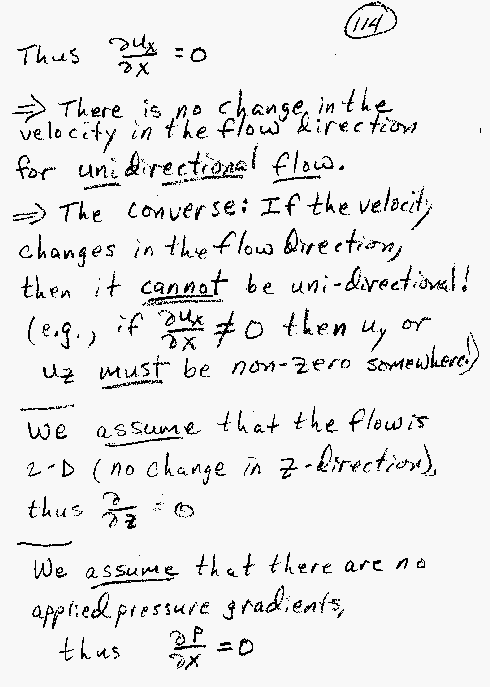 114
Thus ∂ux/∂x = 0
⇒ There is no change in the
velocity in the flow direction
for unidirectional flow.
⇒ The converse: If the velocity
changes in the flow direction,
then it cannot be uni-directional!
(e.g., if ∂ux/∂x ≠ 0 then uy or
uz must be non-zero somewhere!)
We assume that the flow is
2-D (no change in z-direction),
thus ∂/∂z = 0
We assume that there are no
applied pressure gradients,
thus ∂P/∂x = 0